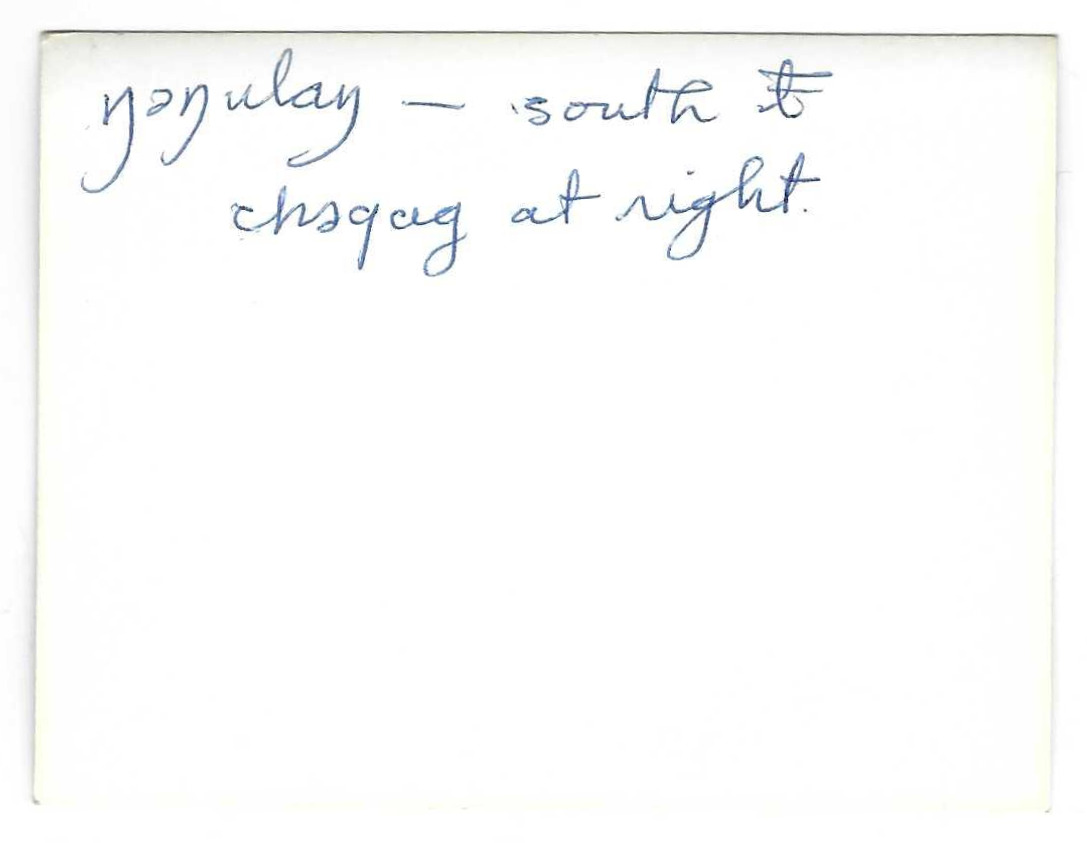 ŋəŋulaŋ — south to
chəqag at right.